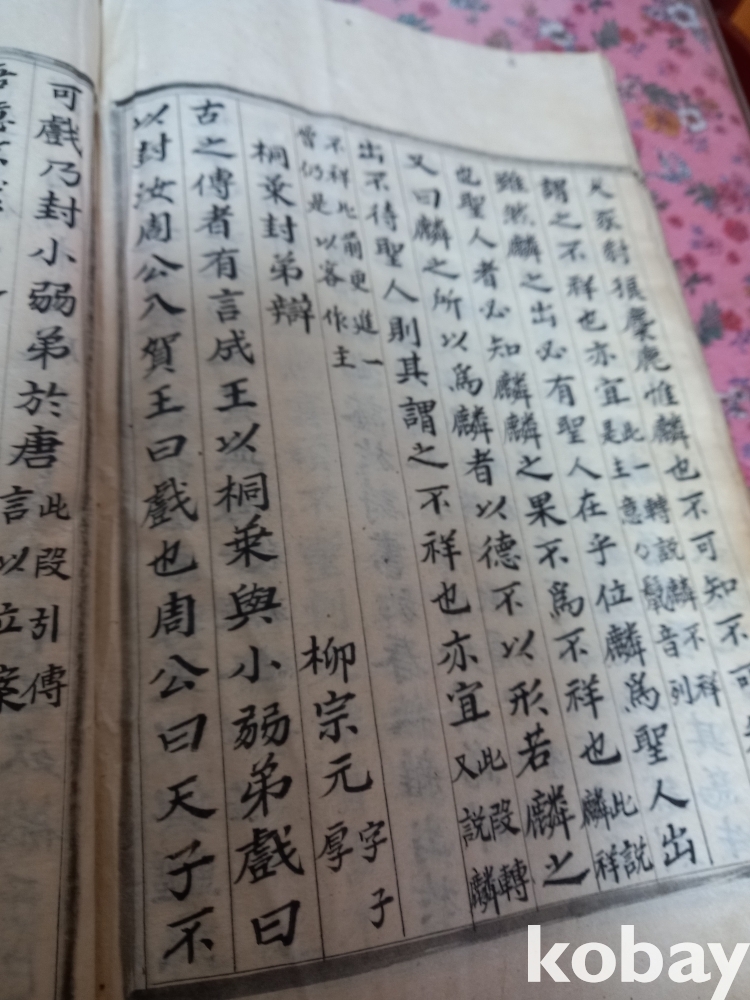 犬豕豺狼麋鹿惟麟也不可知不可
謂之不祥也亦宜此一轉說麟不祥是主意〇鬣音列
雖然麟之出必有聖人在乎位麟爲聖人出
也聖人者必知麟麟之果不爲不祥也此說麟祥
又曰麟之所以爲麟者以德不以形若麟之
出不待聖人則其謂之不祥也亦宜此段轉又說麟
不祥比前更進一
曾仍是以客作主
桐葉封弟辯 柳宗元字子厚
古之傳者有言成王以桐葉與小弱弟戲曰
以封汝周公入賀王曰戲也周公曰天子不
可戲乃封小弱弟於唐此段引傳言以立案
吾意
kobay